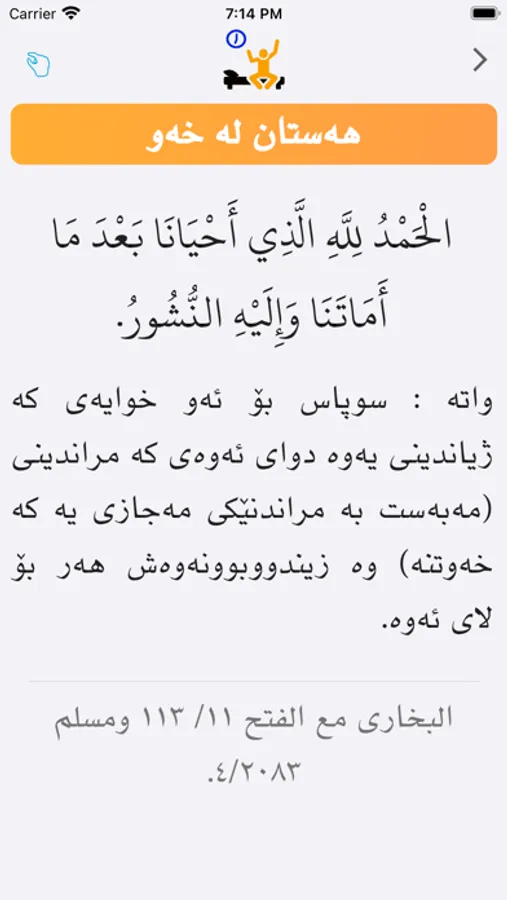 Carrier 7:14 PM
١
هەستان لە خەو
الْحَمْدُ لِلَّهِ الَّذِي أَحْيَانَا بَعْدَ مَا
أَمَاتَنَا وَإِلَيْهِ النُّشُورُ.
واتە : سوپاس بۆ ئەو خوایەی کە
ژیاندینی یەوە دوای ئەوەی کە مراندینی
(مەبەست بە مراندنێکی مەجازی یە کە
خەوتنە) وە زیندووبوونەوەش هەر بۆ
لای ئەوە.
البخاری مع الفتح ١١/ ١١٣ ومسلم
٤/٢٠٨٣.